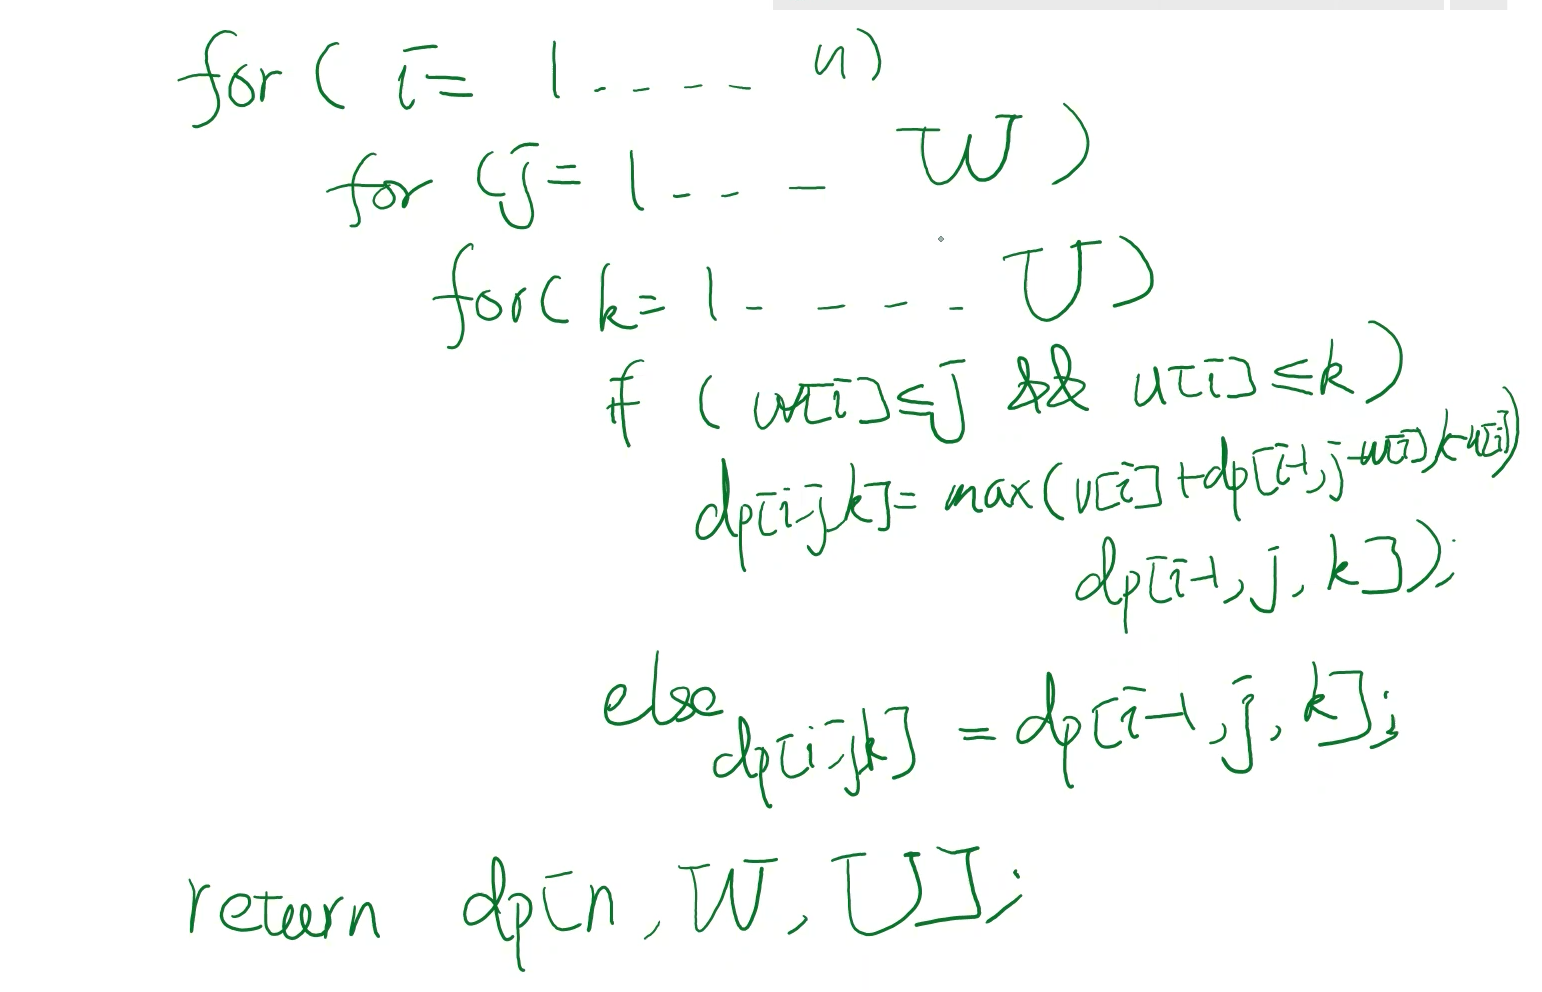 for ( i = 1 . - - - - n)
for (j = 1 - - - W )
for( k = 1 - - - - - U )
if ( w[i] ≤ j && u[i] ≤ k )
dp[i,j,k] = max(v[i] + dp[i-1, j-w[i], k-u[i])
dp[i-1, j, k]);
else
dp[i,j,k] = dp[i-1, j, k];
return dp[n, W, U];